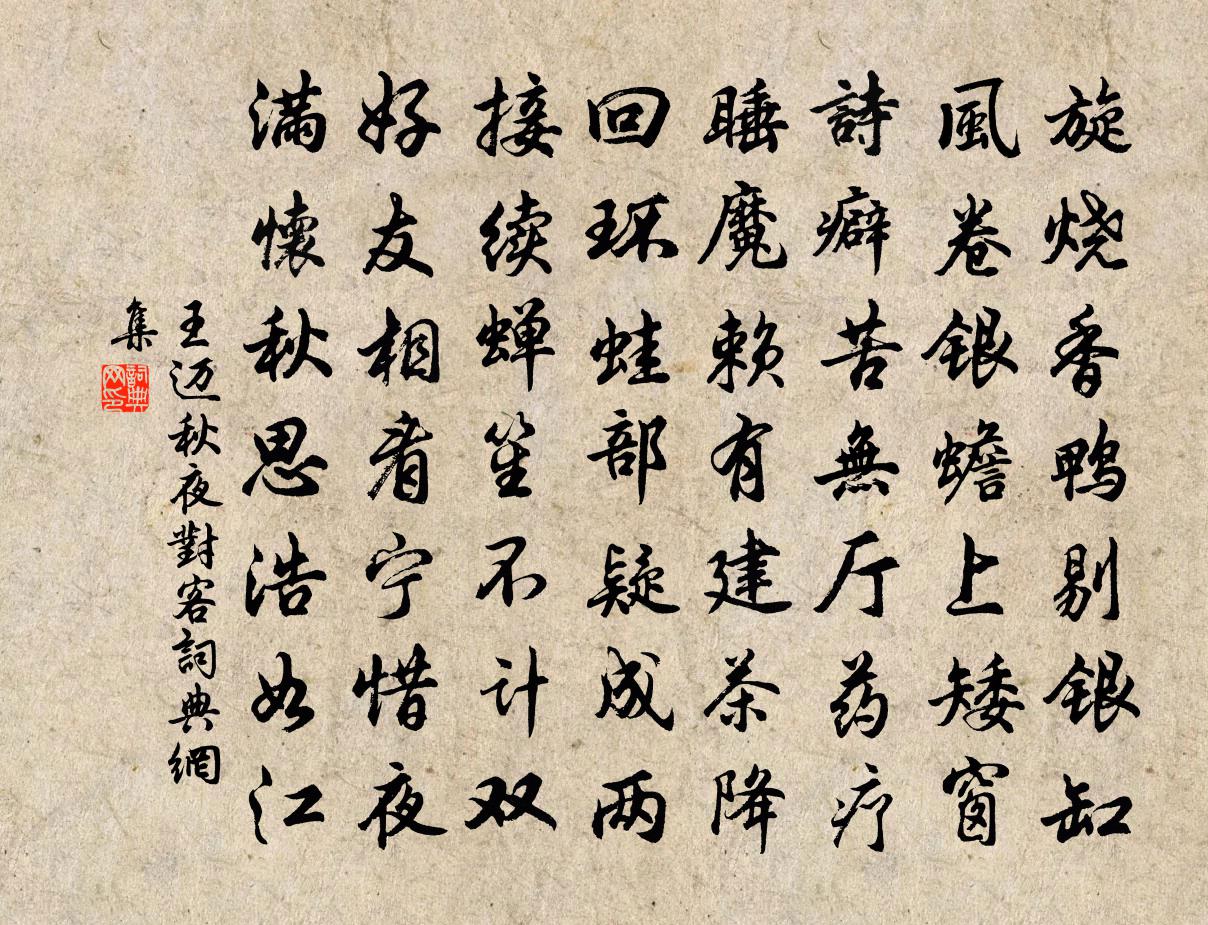 旋烧香鸭剔银缸
風卷银蟾上矮窗
詩癖苦無厅药疗
睡魔赖有建茶降
回环蛙部疑成两
接续蝉笙不计双
好友相看宁惜夜
满懷秋思浩如江
王迈秋夜對客詞典網
集
詞典网印